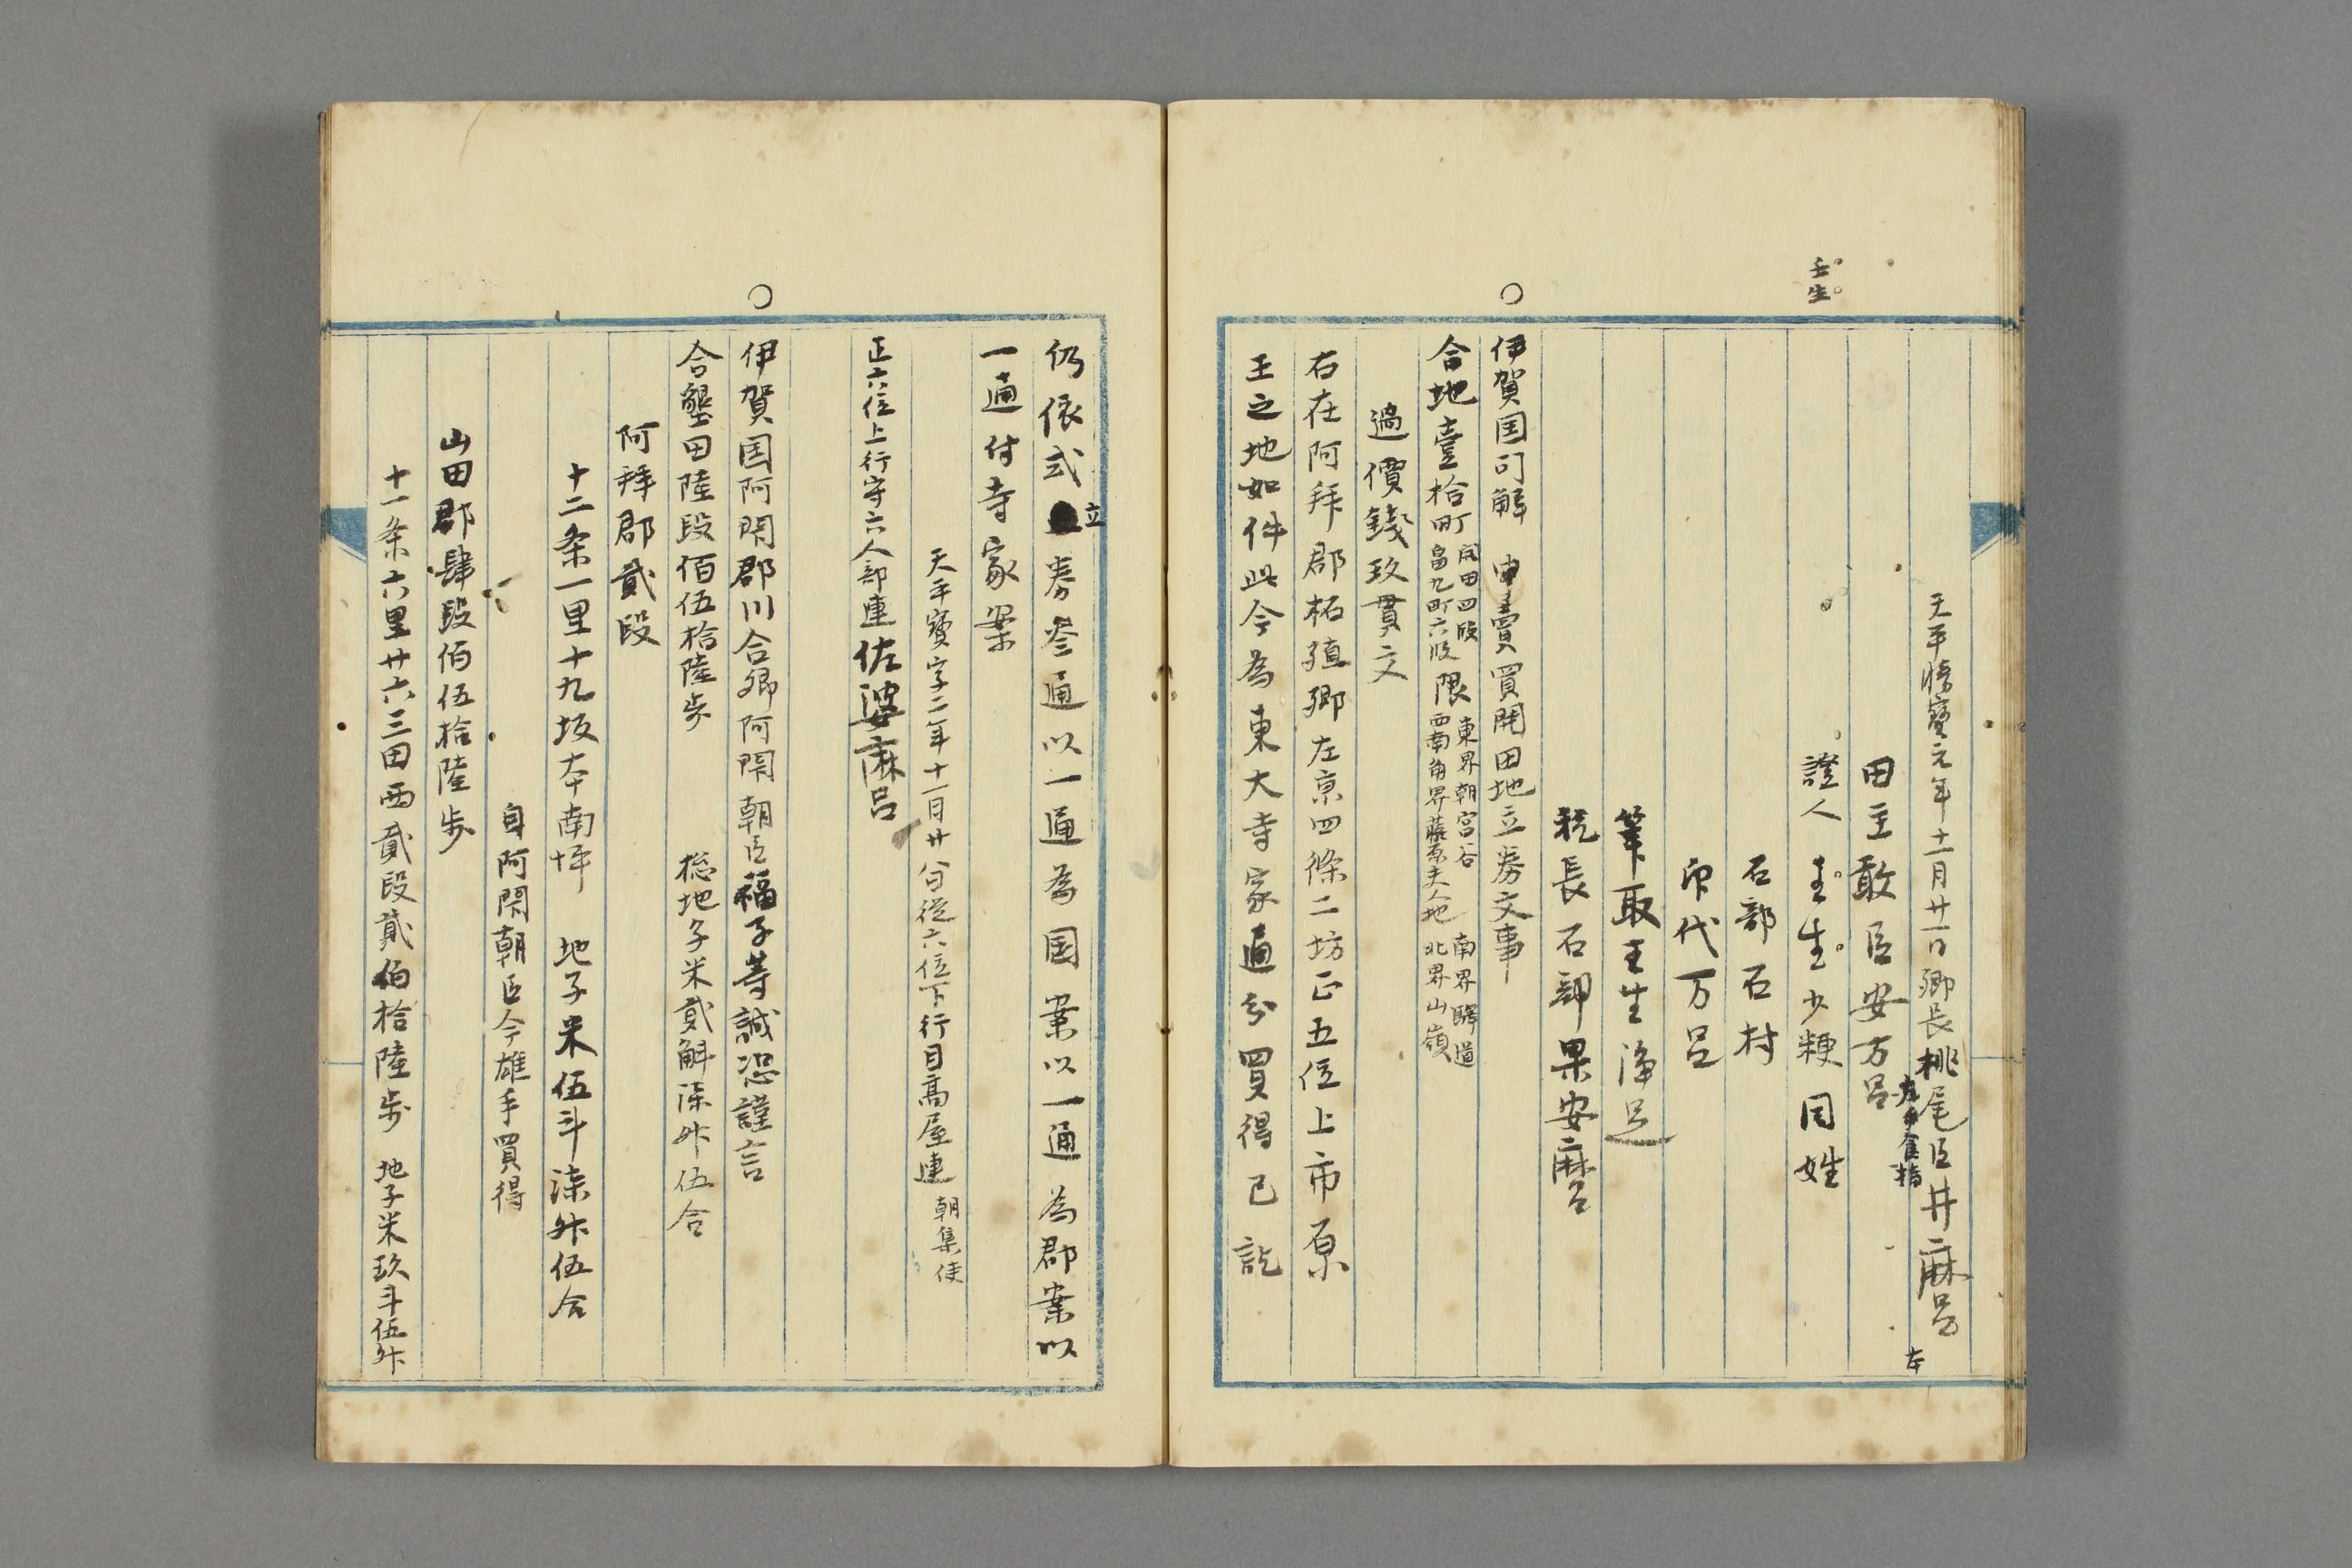 壬生
天平勝寳元年十一月廿一日卿長桃尾臣井麻呂
田主敢臣安万呂
左手食指 本
證人 壬生少粳 同姓
石部石村
印代万呂
筆取壬生浄足
税長石部果安麿
伊賀国司解 申賣買開田地立券文事
合地壹拾町 開田四段 畠九町六段 限 東界朝宮谷 西南角界藤原夫人地 南界驛道 北界山嶺
過價錢玖貫文
右在阿拜郡柘殖郷左京四條二坊正五位上市原
王之地如件此今為東大寺家通分買得已訖
仍依式立券叁通以一通為国案以一通為郡案以
一通付寺家案
天平寶字二年十一月廿八日從六位下行目高屋連 朝集使
正六位上行守六人部連佐婆麻呂
伊賀国阿閇郡川合郷阿閇朝臣福子等誠恐謹言
合墾田陸段佰伍拾陸歩 捴地子米貳斛漆舛伍合
阿拜郡貳段
十二条一里十九坂本南坪 地子米伍斗漆舛伍合
自阿閇朝臣今雄手買得
山田郡肆段佰伍拾陸歩
十一条六里廿六三田西貳段貳佰拾陸歩 地子米玖斗伍舛